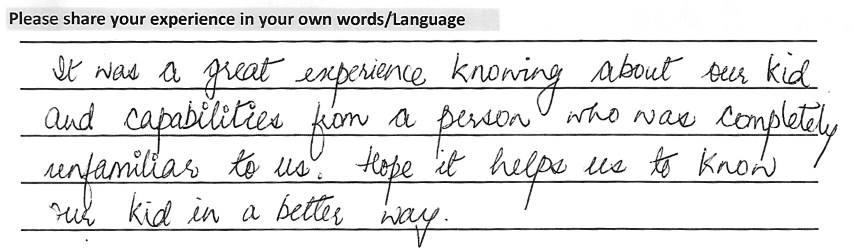 Please share your experience in your own words/Language
It was a great experience knowing about our kid
and capabilities from a person who was completely
unfamiliar to us. Hope it helps us to know
our kid in a better way.